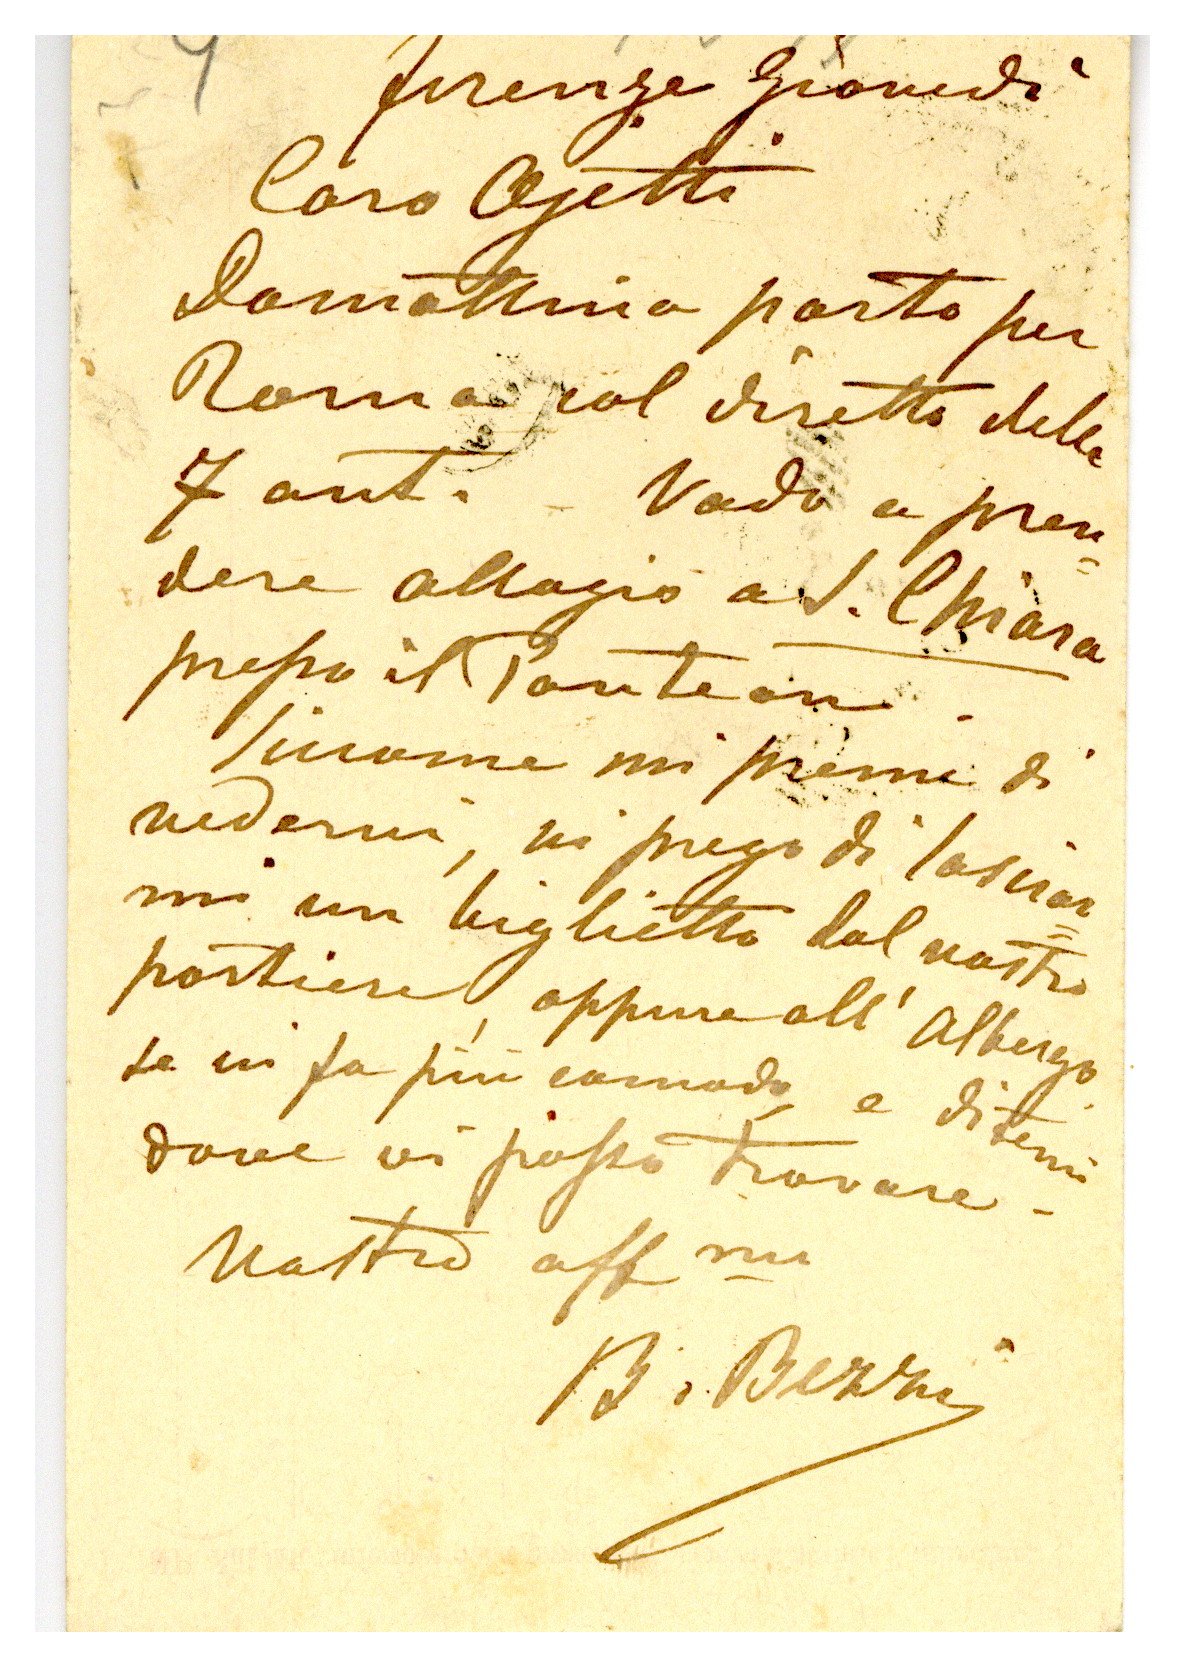 Firenze Giovedì
Caro Ojetti
Domattina parto per
Roma col diretto delle
7 ant. – Vado a pren=
dere allogio a S. Chiara
presso il Panteon.
Siccome mi preme di
vedervi, vi prego di lasciar=
mi un biglietto dal vostro
portiere, oppure all' Albergo
se vi fa più comodo, e ditemi
dove vi posso trovare –
Vostro aff mo
B. Bezzi